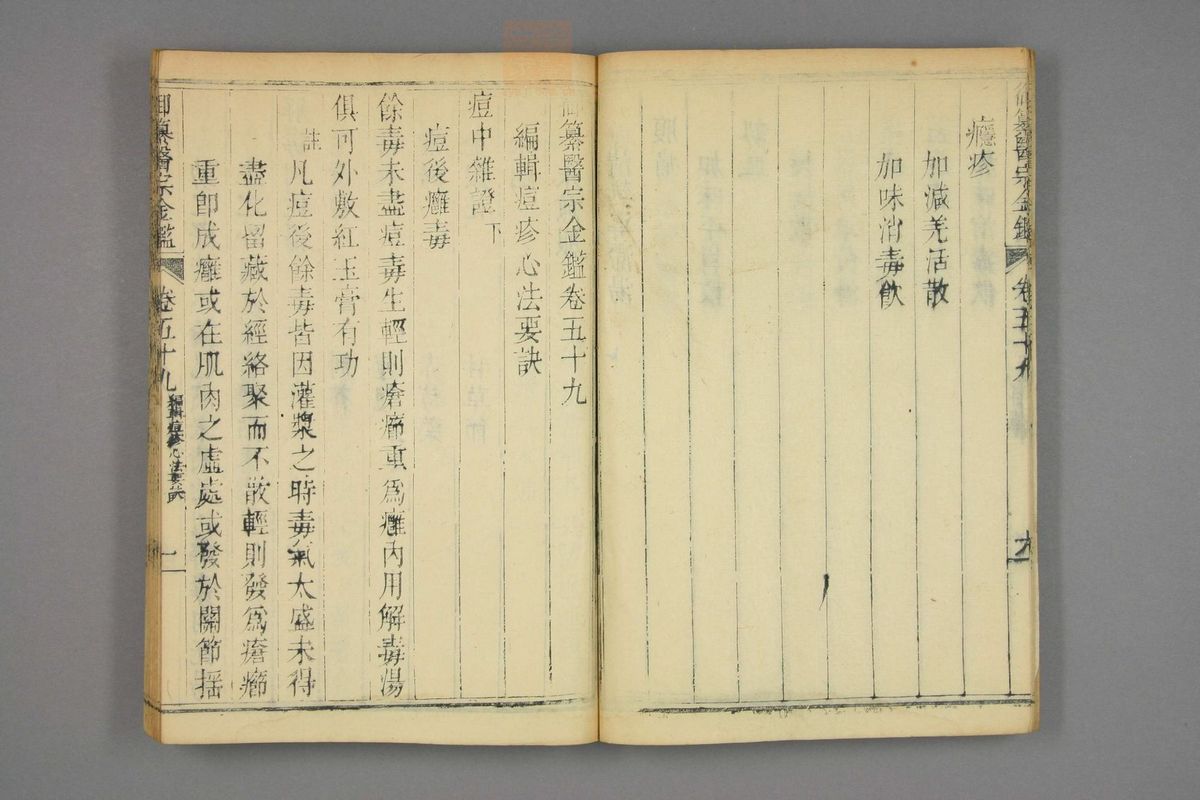 御纂醫宗金鑑 卷五十九 六
癮疹
加減羌活散
加味消毒飲
御纂醫宗金鑑卷五十九
編輯痘疹心法要訣
痘中雜證下
痘後癰毒
餘毒未盡痘毒生輕則瘡癤重爲癰內用解毒湯
俱可外敷紅玉膏有功
註凡痘後餘毒皆因灌漿之時毒氣太盛未得
盡化留藏於經絡聚而不散輕則發爲瘡癤
重即成癰或在肌肉之虛處或發於關節搖
御纂醫宗金鑑 卷五十九 編輯痘疹心法要訣 一